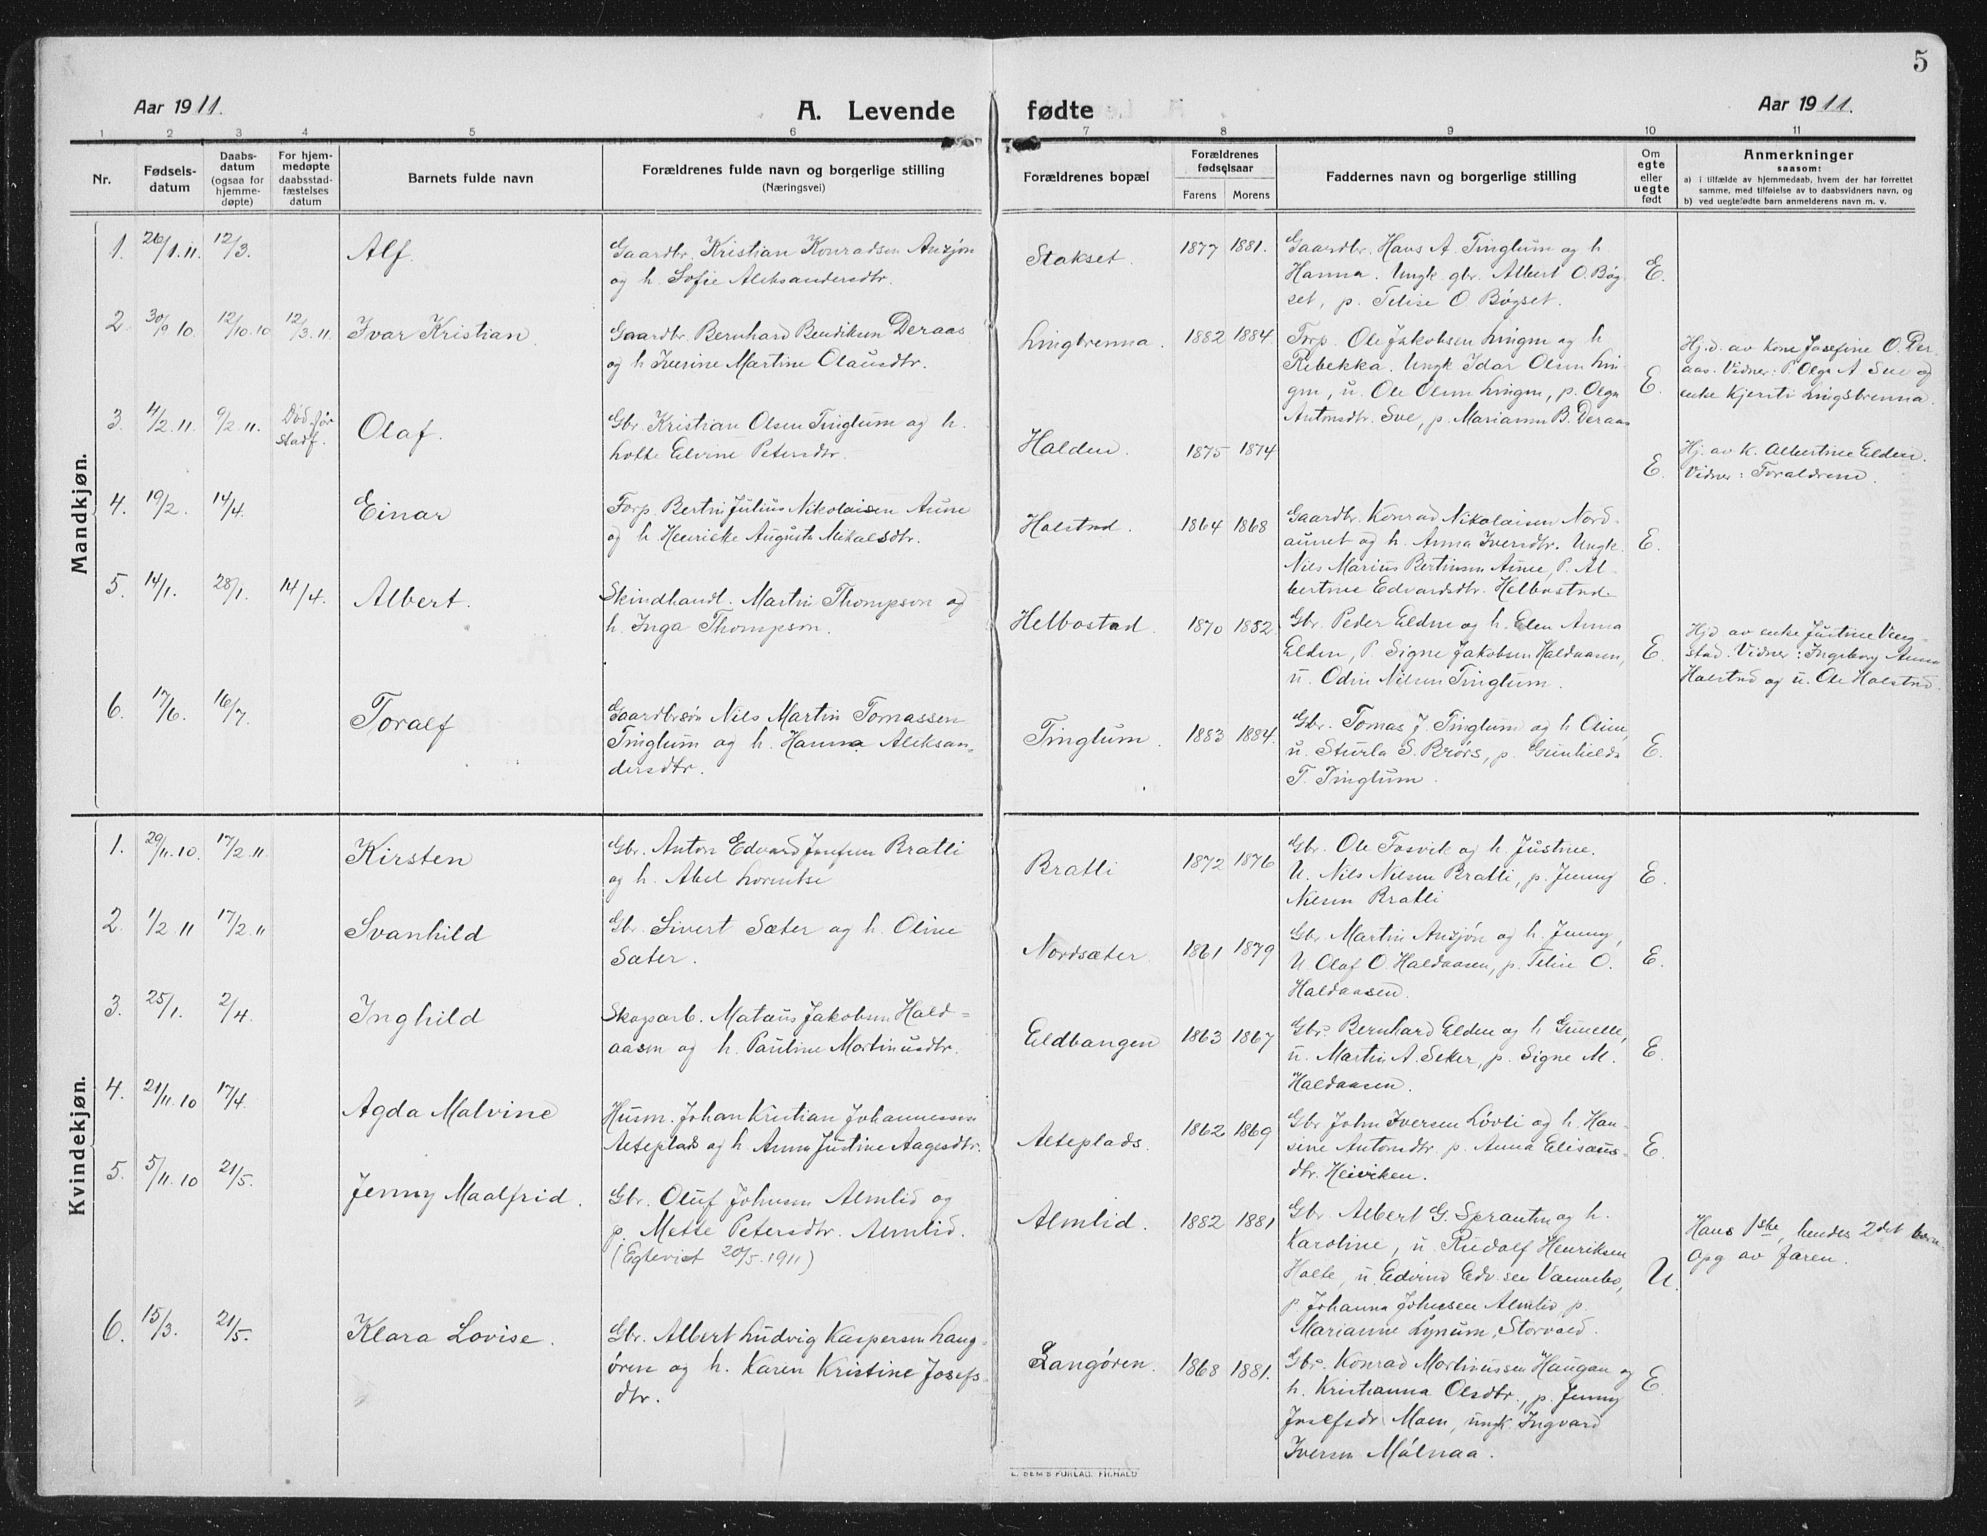 5
Aar 1911.
A. Levende fødte
Aar 1911.
1 2 3 4 5 6 7 8 9 10 11
Nr.
Fødsels-
datum
Daabs-
datum
(ogsaa for
hjemme-
døpte)
For hjem-
medøpte
daabsstad-
fæstelses
datum
Barnets fulde navn
Forældrenes fulde navn og borgerlige stilling
(Næringsvei)
Forældrenes bopæl
Forældrenes
fødselsaar
Farens Morens
Faddernes navn og borgerlige stilling
Om
egte
eller
uegte
født
Anmerkninger
saasom:
a) i tilfælde av hjemmedaab, hvem der har forrettet
samme, med tilføielse av to daabsvidners navn, og
b) ved uegtefødte barn anmelderens navn m. v.
Mandkjøn.
1. 26/1.11. 12/3. Alf.
Gaardbr. Kristian Konradsen Ansjøn
og h. Sofie Aleksandersdtr.
Stokset. 1877 1881.
Gaardbr. Hans A. Tinglum og h.
Hanna. Ungk. gbr. Albert O. Bøg-
set, p. Telise O. Bøgset.
E.
2. 30/9 10. 12/10.10 12/3.11. Ivar Kristian.
Gaardbr. Bernhard Bendiksen Deraas
og h. Iverine Martine Olausdtr.
Lingbrenna. 1882 1884
Forp. Ole Jakobsen Lingm og h
Rebekka. Ungk. Idar Olsen Lin-
gm, u. Ole Olsen Lingm, p. Olga
Antonsdtr. Sve, p. Marianne B. Deraas
E.
Hj.d. av kone Josefine O. Der-
aas. Vidner: P. Olga A. Sve og
enke Kjersti Lingsbrenna.
3. 4/2.11. 9/2.11. Død før
stadf.
Olaf.
Gbr. Kristian Olsen Tinglum og h.
Lotte Elvine Petersdtr.
Halden. 1875 1874
E.
Hj. av K. Albertine Elden.
Vidner: Foraldrene.
4. 19/2. 14/4. Einar
Forp. Bertin Julius Nikolaisen Aune
og h. Henrikke Augusta Mikalsdtr.
Holstad. 1864 1868
Gaardbr. Konrad Nikolaisen Nord-
aunet og h. Anna Iversdtr. Ungk.
Nils Marius Bertinsen Aune, P. Al-
bertine Edvardsdtr. Helbostad.
E.
5. 14/1. 28/1. 14/4. Albert.
Skindhandl. Martin Thompson og
h. Inga Thompson.
Helbostad. 1870 1882
Gbr. Peder Elden og h. Elen Anna
Elden, P. Signe Jakobsen Haldaasen,
u. Odin Nilsen Tinglum.
E.
Hjd av enke Justine Veng-
stad. Vidner: Ingeborg Anna
Holstad og u. Ole Holstad.
6. 17/6. 16/7. Toralf
Gaardbrsøn Nils Martin Tomassen
Tinglum og h. Hanna Aleksan-
dersdtr.
Tinglum. 1883 1884.
Gbr. Tomas J. Tinglum og h Oline,
u. Sturla S. Brørs, p. Gunhilda
T. Tinglum.
E.
Kvindekjøn.
1. 29/11.10. 17/2.11. Kirsten
Gbr. Anton Edvard Josefsen Bratli
og h. Abel Lorentse
Bratli 1872 1876
Gbr. Ole Fosvik og h. Justine.
U. Nils Nilsen Bratli, p. Jenny
Nilsen Bratli
E.
2. 1/2 11 17/2.11 Svanhild
Gbr. Sivert Sæter og h. Oline
Sæter.
Nordsæter. 1861 1879
Gbr. Martin Ansjøn og h. Jenny,
U. Olaf O. Haldaasen, p. Telise O.
Haldaasen.
E.
3. 25/1. 2/4. Inghild
Skogsarb. Matæus Jakobsen Hald-
aasen og h. Pauline Martinusdtr.
Eldbangen 1863 1867
Gbr. Bernhard Elden og h Gunelle,
u. Martin A. Seker, p. Signe M.
Haldaasen.
E.
4. 21/11.10 17/4. Agda Malvine
Husm. Johan Kristian Johannessen
Alteplads og h Anna Justine Aagesdtr.
Alteplads. 1862 1869
Gbr John Iversen Løvli og h. Han-
sine Antonsdtr. p. Anna Elisæus-
dtr. Heiviken.
E.
5. 5/11.10 21/5. Jenny Maalfrid.
Gbr. Oluf Johnsen Almlid og
p. Mette Petersdtr. Almlid.
(Egteviet 20/5.1911)
Almlid. 1882 1881
Gbr. Albert G. Sprauten og h.
Karoline, u. Rudolf Henriksen
Holte, u. Edvind Edv.sen Vannebo,
p. Johanna Johnsen Almlid p.
Marianne Lynum, Storvold.
U.
Hans 1ste, hendes 2det barn.
Opg av faren.
6. 15/3. 21/5. Klara Lovise.
Gbr. Albert Ludvig Kaspersen Lang-
ören og h. Karen Kristine Josefs-
dtr.
Langören. 1868 1881.
Gbr. Konrad Martinussen Haugan og
h. Kristianna Olsdtr., p. Jenny
Josefsdr. Moen, ungk. Ingvard
Iversen Målnaa.
E.
E. SEM'S FORLAG, FR.HALD